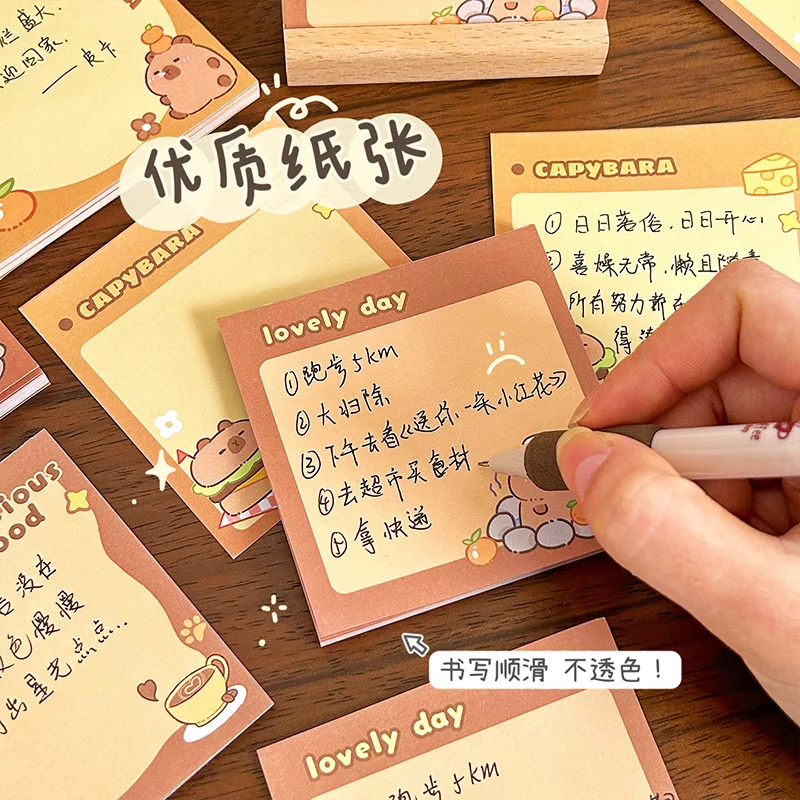 烂盛大.
迎回家.
——皮卡
优质纸张
CAPYBARA
① 日日落俗,日日开心.
喜燥无常,懒且随意
所有努力都在
得
CAPYBARA
lovely day
① 跑步5km
② 大扫除
③ 下午去看《送你一朵小红花》
④ 去超市买食材
⑤ 拿快递
ood
没在
色慢慢
出星光点点...
书写顺滑 不透色!
lovely day
跑步5km